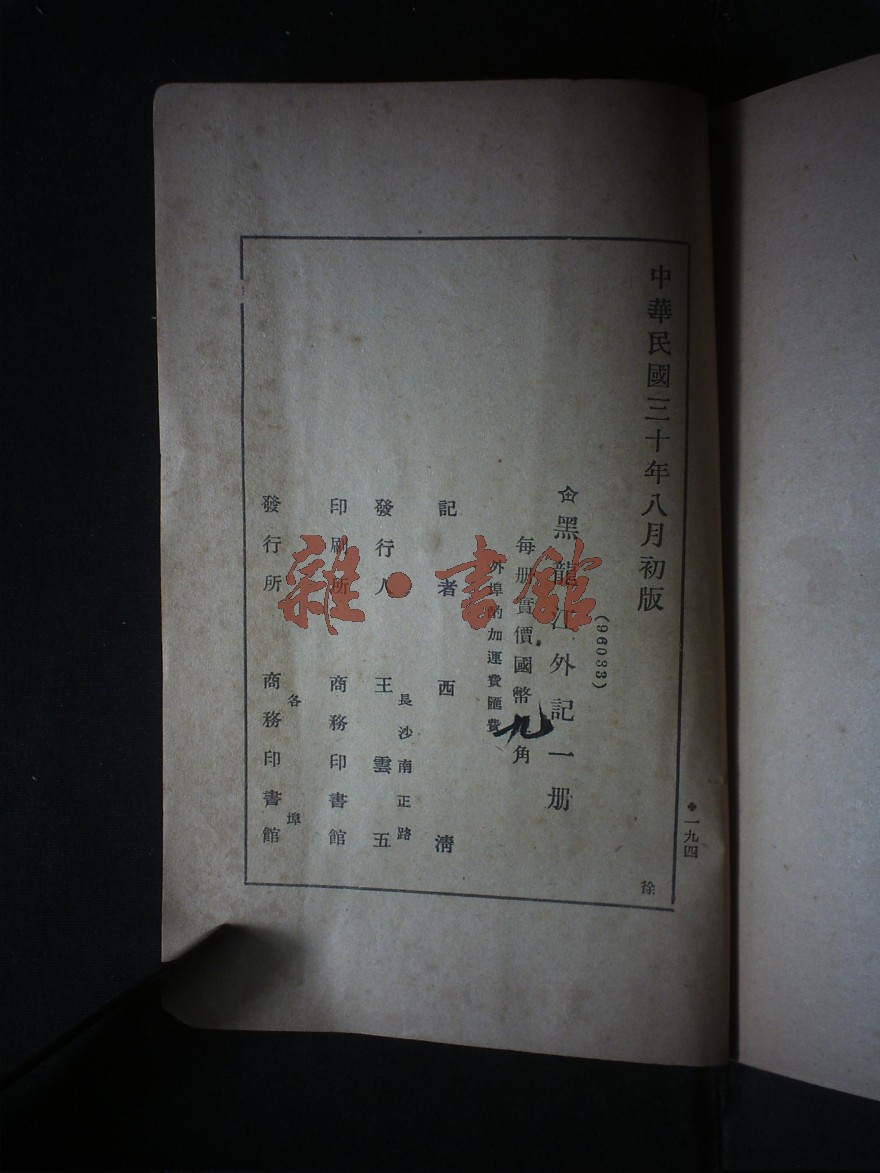 中華民國三十年八月初版
(96033)
黑龍江外記一册
每册實價國幣九角
外埠酌加運費匯費
記者 西清
長沙南正路
發行人 王雲五
印刷所 商務印書館
各埠
發行所 商務印書館
❖一九四
徐
雜·書館